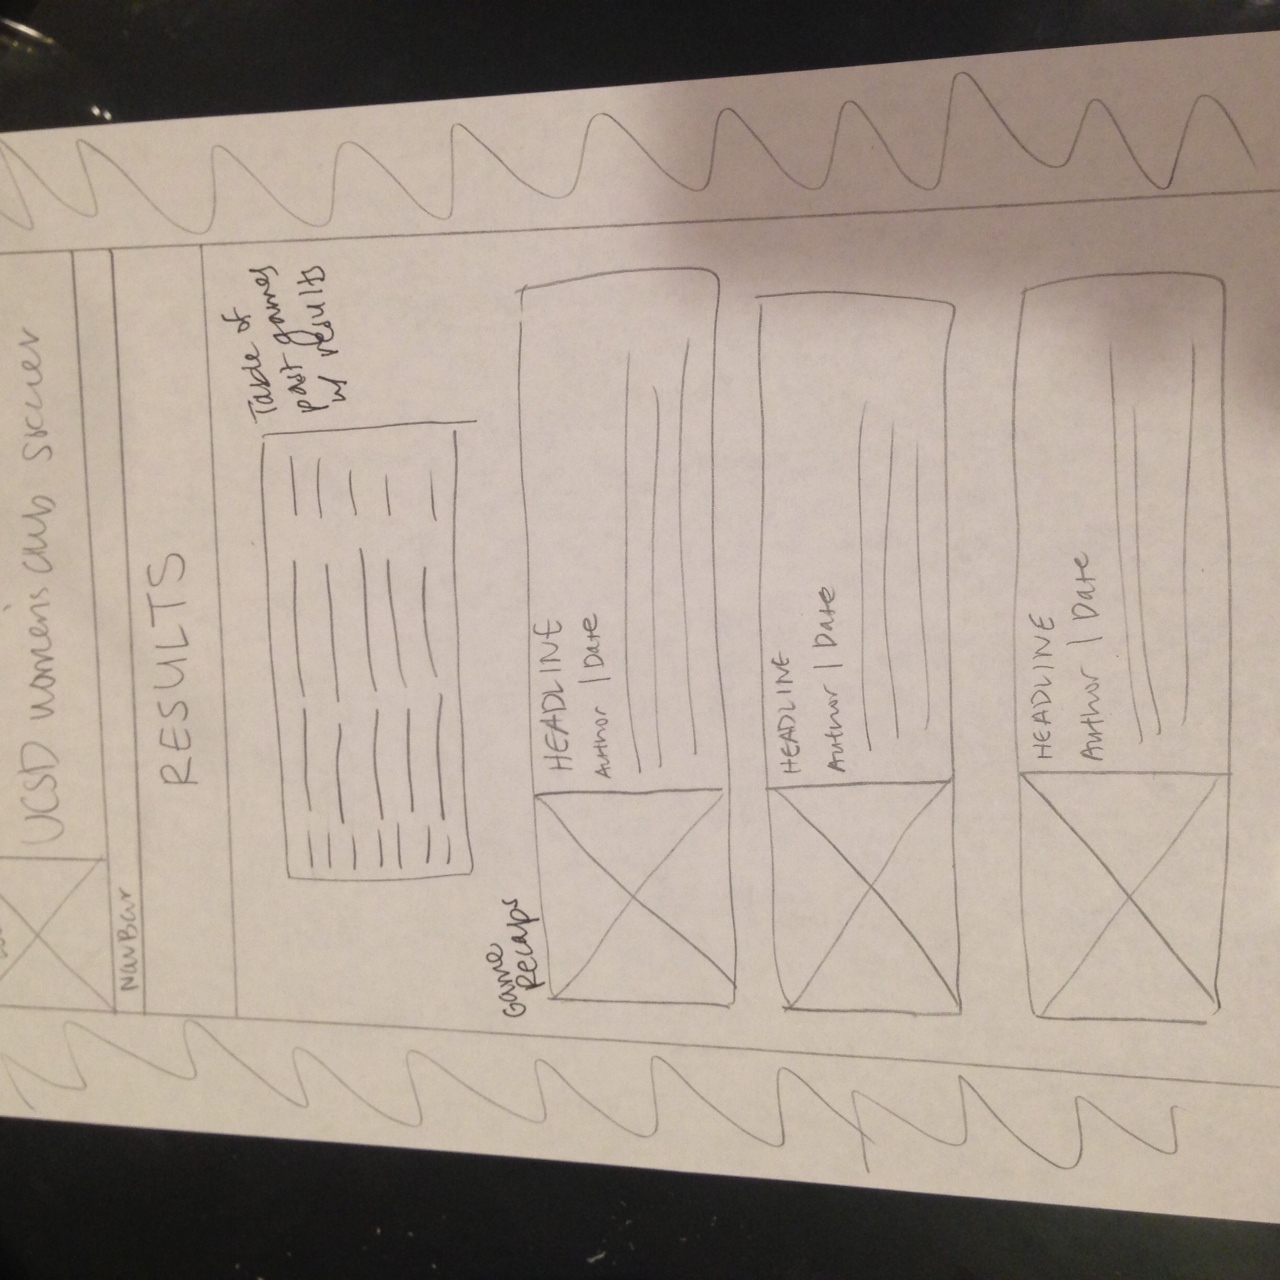 UCSD women's club soccer
NavBar
RESULTS
Table of
past games
w/ results
Game
Recaps
HEADLINE
Author | Date
HEADLINE
Author | Date
HEADLINE
Author | Date